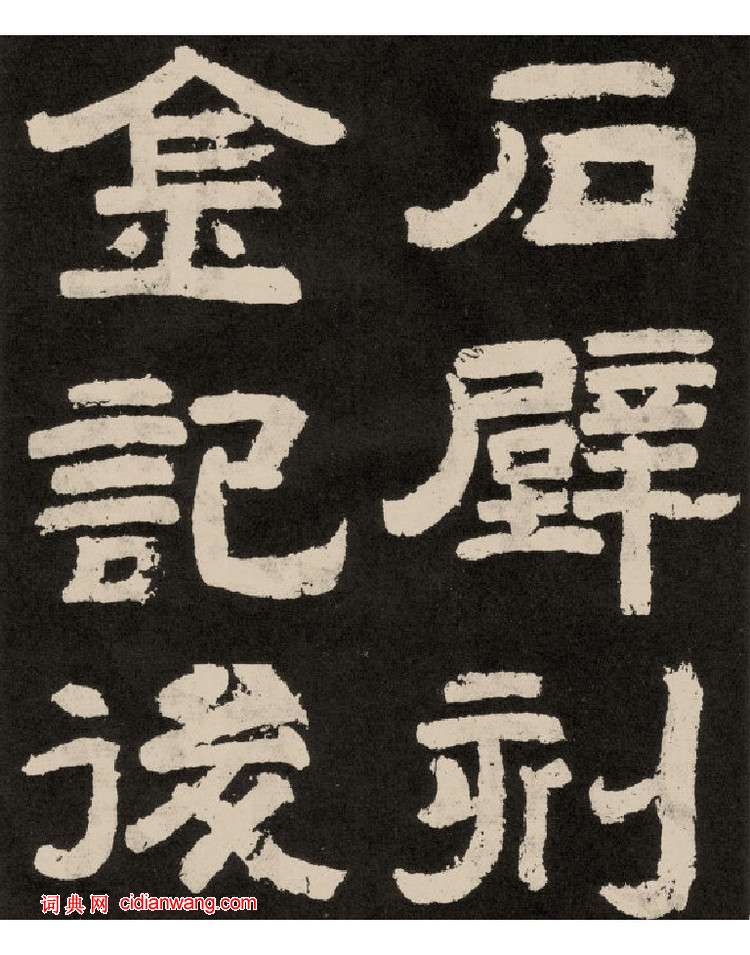 石壁
金記後
词典网 cidianwang.com